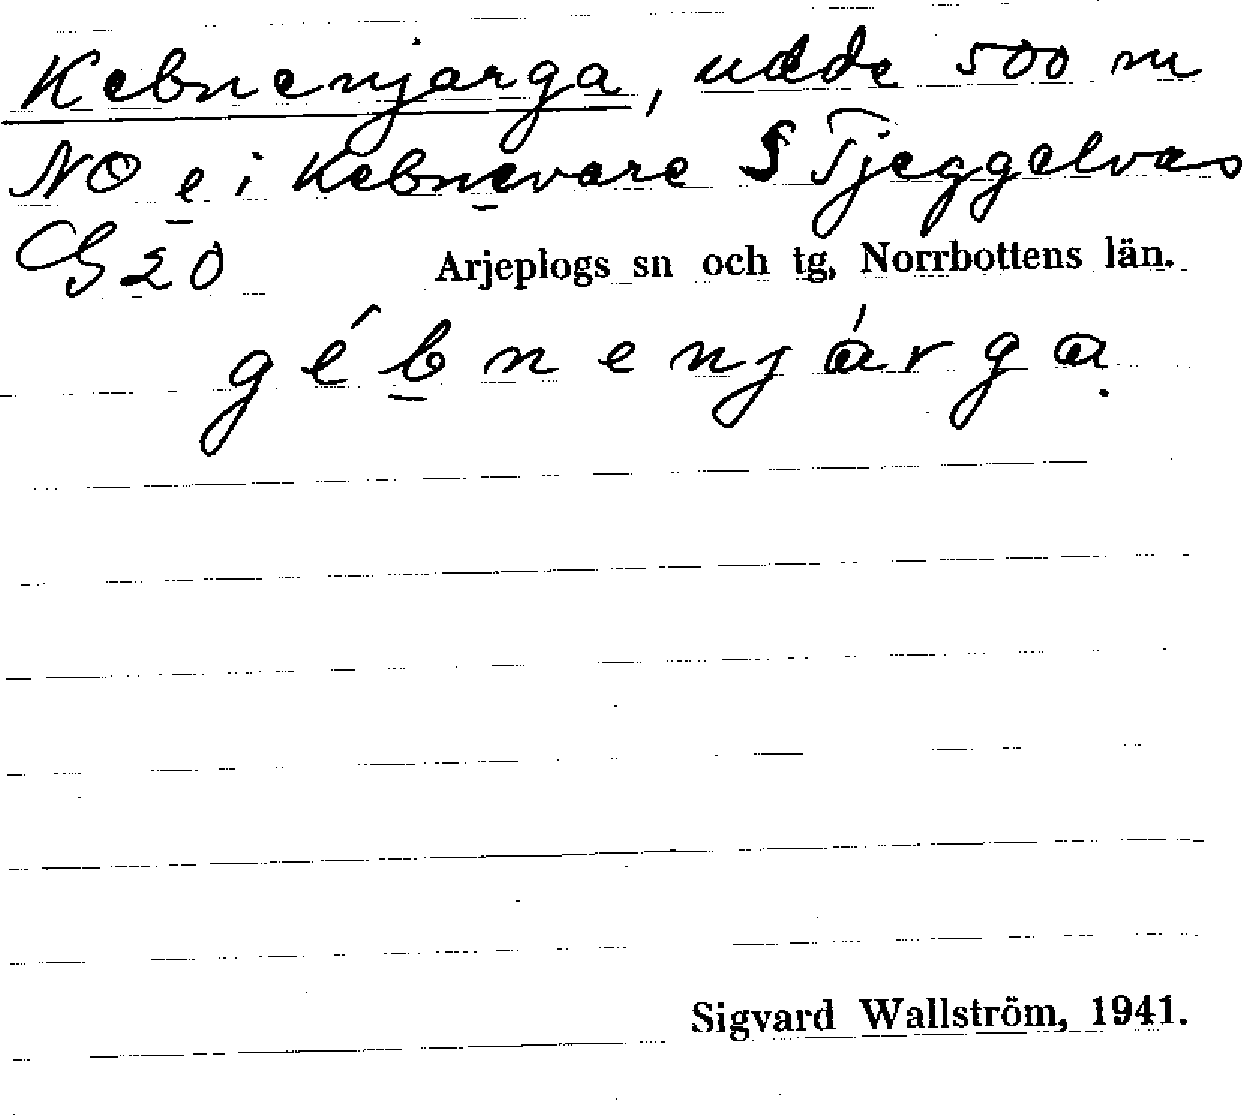 Kebnenjarga, udde 500 m
NO e i Kebnevare S Tjeggelvas
G 20 Arjeplogs sn och tg, Norrbottens län.
gébnenjárga.
Sigvard Wallström, 1941.